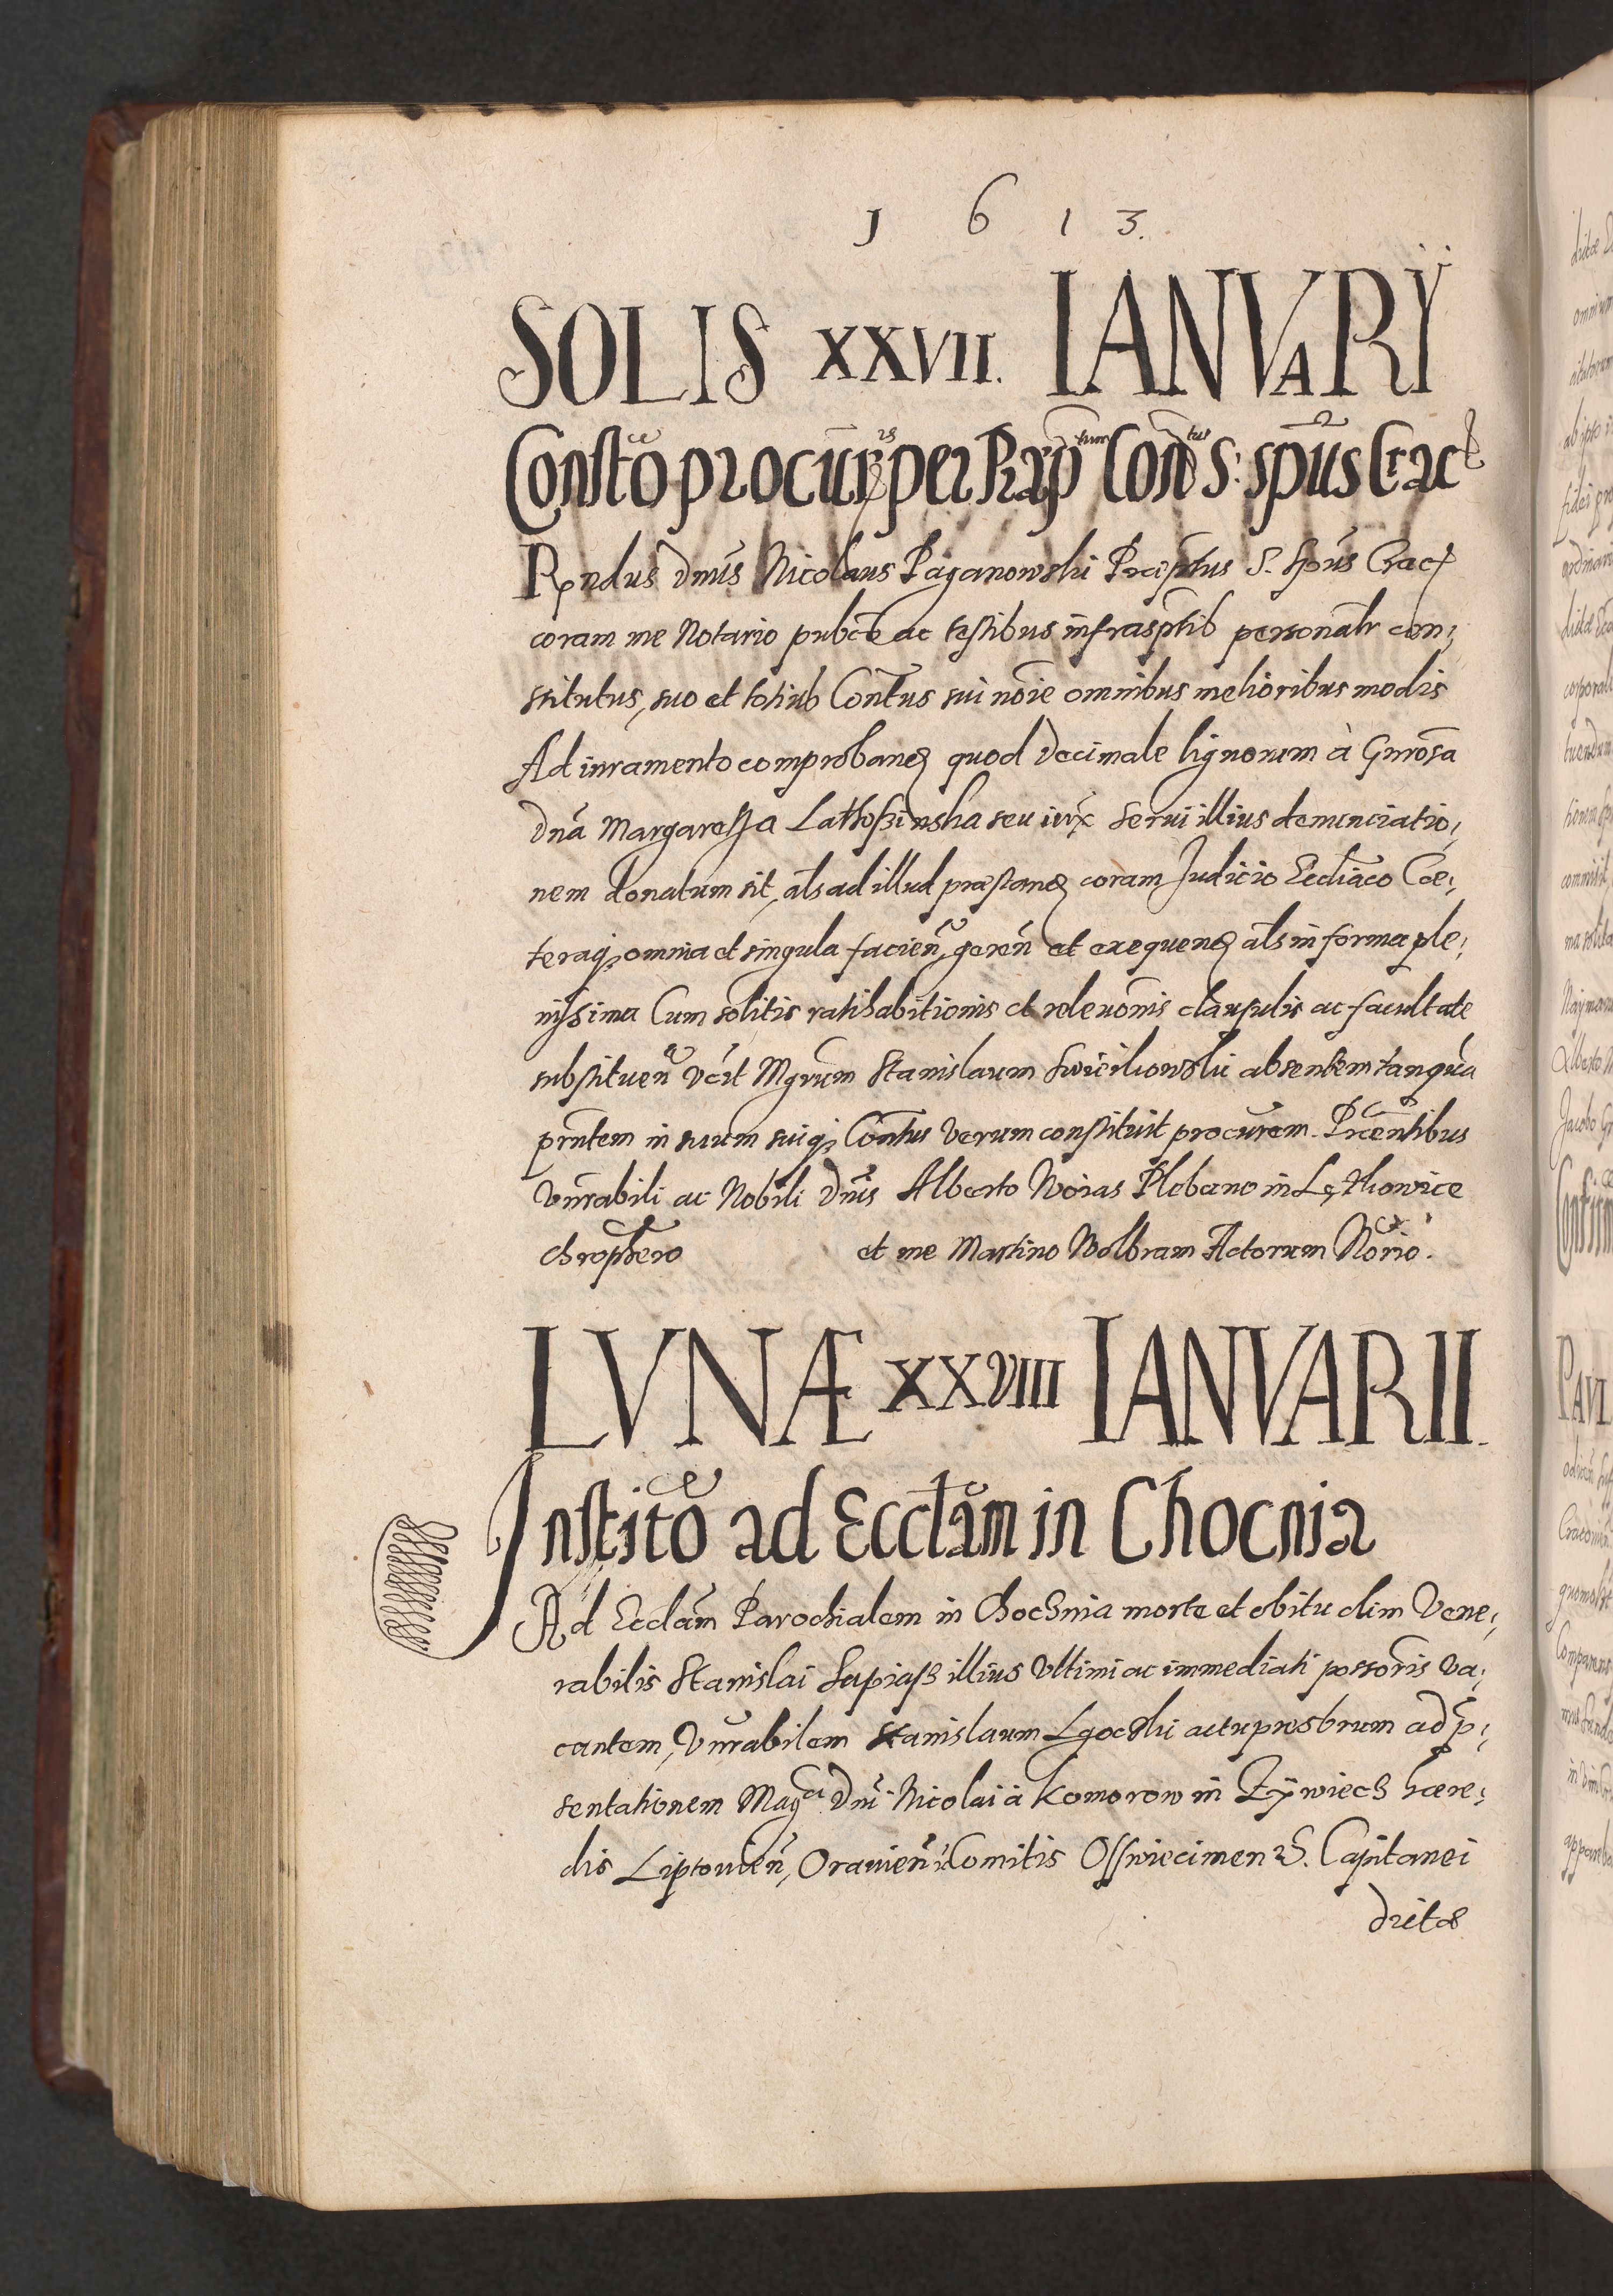 1 6 1 3.
SOLIS XXVII. IANVARÿ
Consto procur͂ per Prap͂ Con S: Sp͂us Crac
Rndus dnus Nicolaus Paganowski Preptus S. Sp͂us Crac
coram me Notario pubco ac testibus infrasptis personalr con,
stitutus, suo et totius Contus sui noie omnibus melioribus modis
Ad iuramento comproband quod decimale lignorum à Gnrosa
dna Margaretta seu servi illius denunciatio,
nem donatum sit, als ad illud præstand coram Judicio Eccliaco Cæ,
teraq, omnia et singula facien, geren et exequend als in forma ple,
nissima Cum solitis ratihabitionis et relevonis clausulis ac facultate
substituen Mgrum Stanislaum absentem tanquã
pntem in suum suiq, Contus verum constituit procurem. Prcentibus
Vnrabili ac Nobili dnis Alberto Woias Plebano in
chrophero et me Martino Wolbram Actorum Norio.
LVNÆ XXVIII IANVARII.
Instito ad Ecclam in Chocnia
Ad Ecclam Parochialem in Chocħnia morte et obitu olim Vene,
rabilis Stanislai illius ultimi ac immediati possoris va,
cantem, Vnrabilem Stanislaum Lgocski actu presbrum ad p,
sentationem Magci Dni Nicolai à Komorow in Zÿwiech hære,
dis Liptovien, Oravien Comitis Osswiecimen &. Capitanei
dictæ